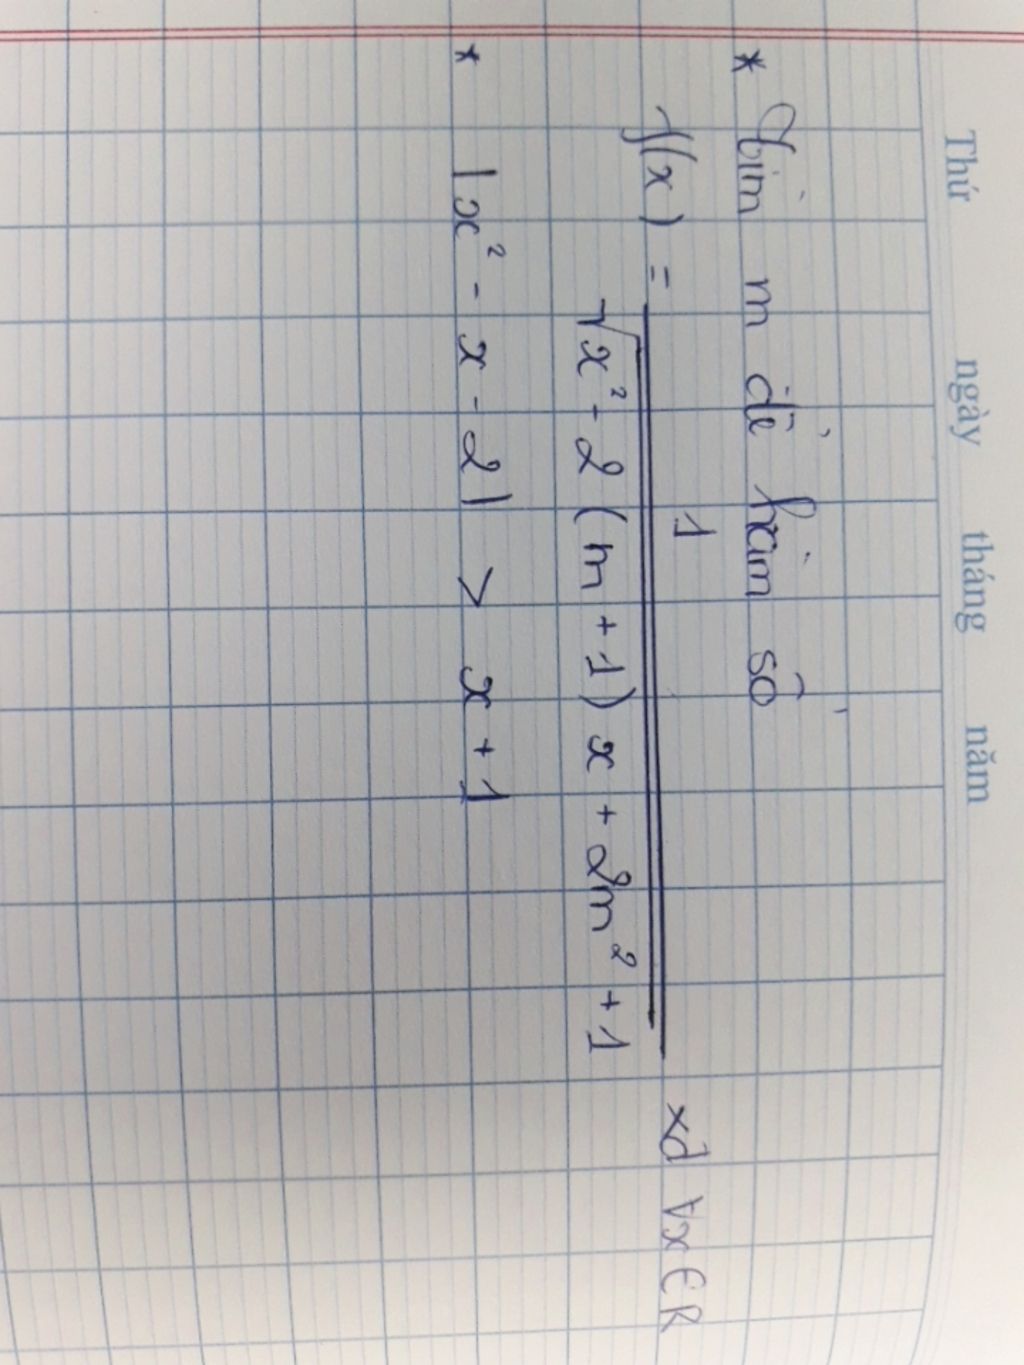 Thứ ngày tháng năm
* Tìm m để hàm số
f(x) = 1
√x² - 2(m + 1)x + 2m² + 1 xđ ∀x ∈ R
* |x² - x - 2| > x + 1